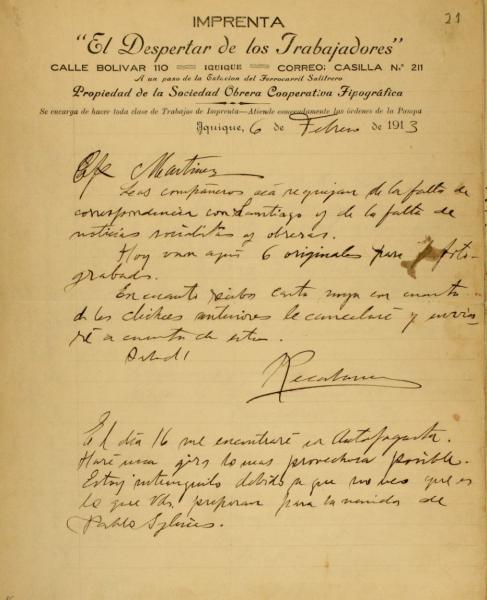 21
IMPRENTA
"El Despertar de los Trabajadores"
CALLE BOLIVAR 110 IQUIQUE CORREO: CASILLA N.º 211
A un paso de la Estacion del Ferrocarril Salitrero
Propiedad de la Sociedad Obrera Cooperativa Tipográfica
Se encarga de hacer toda clase de Trabajos de Imprenta—Atiende esmeradamente las órdenes de la Pampa
Iquique, 6 de Febrero de 1913
Martinez
Los compañeros acá se quejan de la falta de
correspondencia con Santiago y de la falta de
noticias socialistas y obreras.
Hoy van aquí 6 originales para foto-
grabados.
En cuanto reciba carta suya con cuenta
de los clichees anteriores le cancelaré y envia-
ré a cuenta de estos.
Salud!
Recabarren
El día 16 me encontraré en Antofagasta.
Haré una gira lo mas provechosa posible.
Estoy intranquilo debido a que no veo que es
lo que Uds preparan para la venida de
Pablo Iglesias.